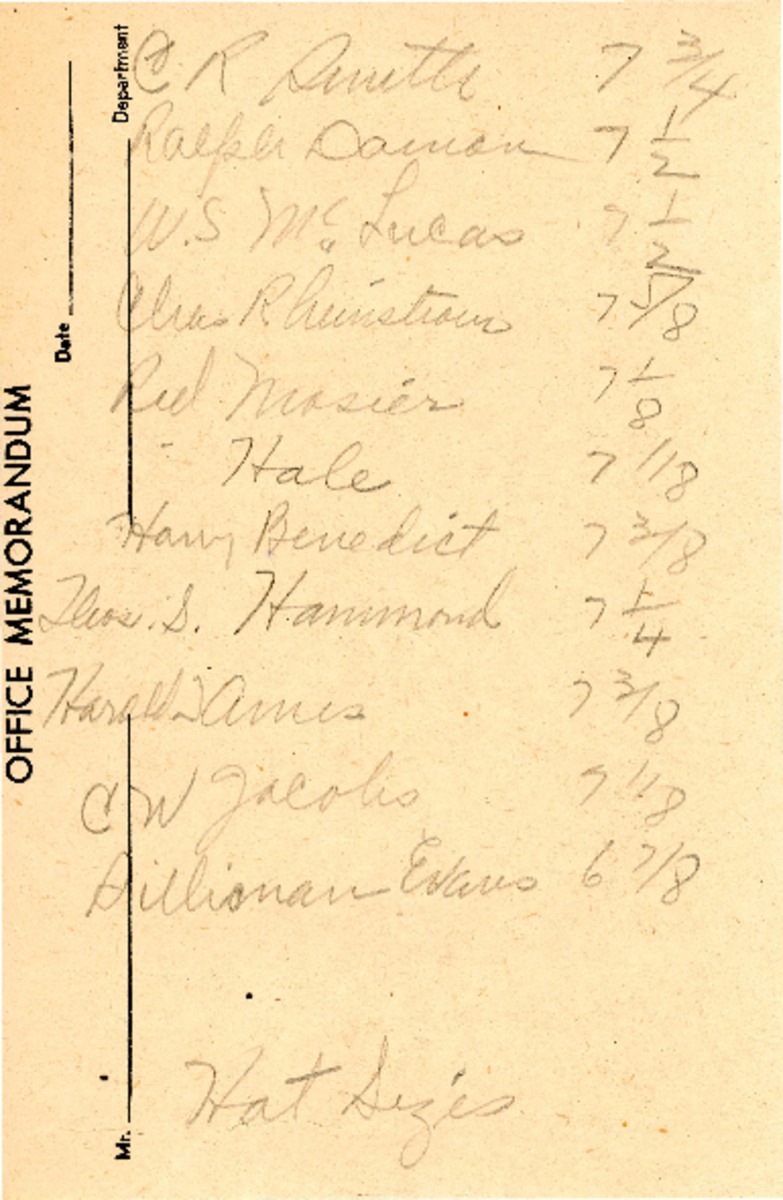 C R Smith 7 3/4
Ralph Damon 7 1/2
W.S Mc Lucas 7 1/2
Chas Rheinstrom 7 5/8
Red Mosier 7 1/8
" Hale 7 1/8
Harry Benedict 7 3/8
Thos. S. Hammond 7 1/4
Harold Ames 7 3/8
C W Jacobs 7 1/8
Silliman Evans 6 7/8
Hat Sizes
OFFICE MEMORANDUM
Date
Mr. Department